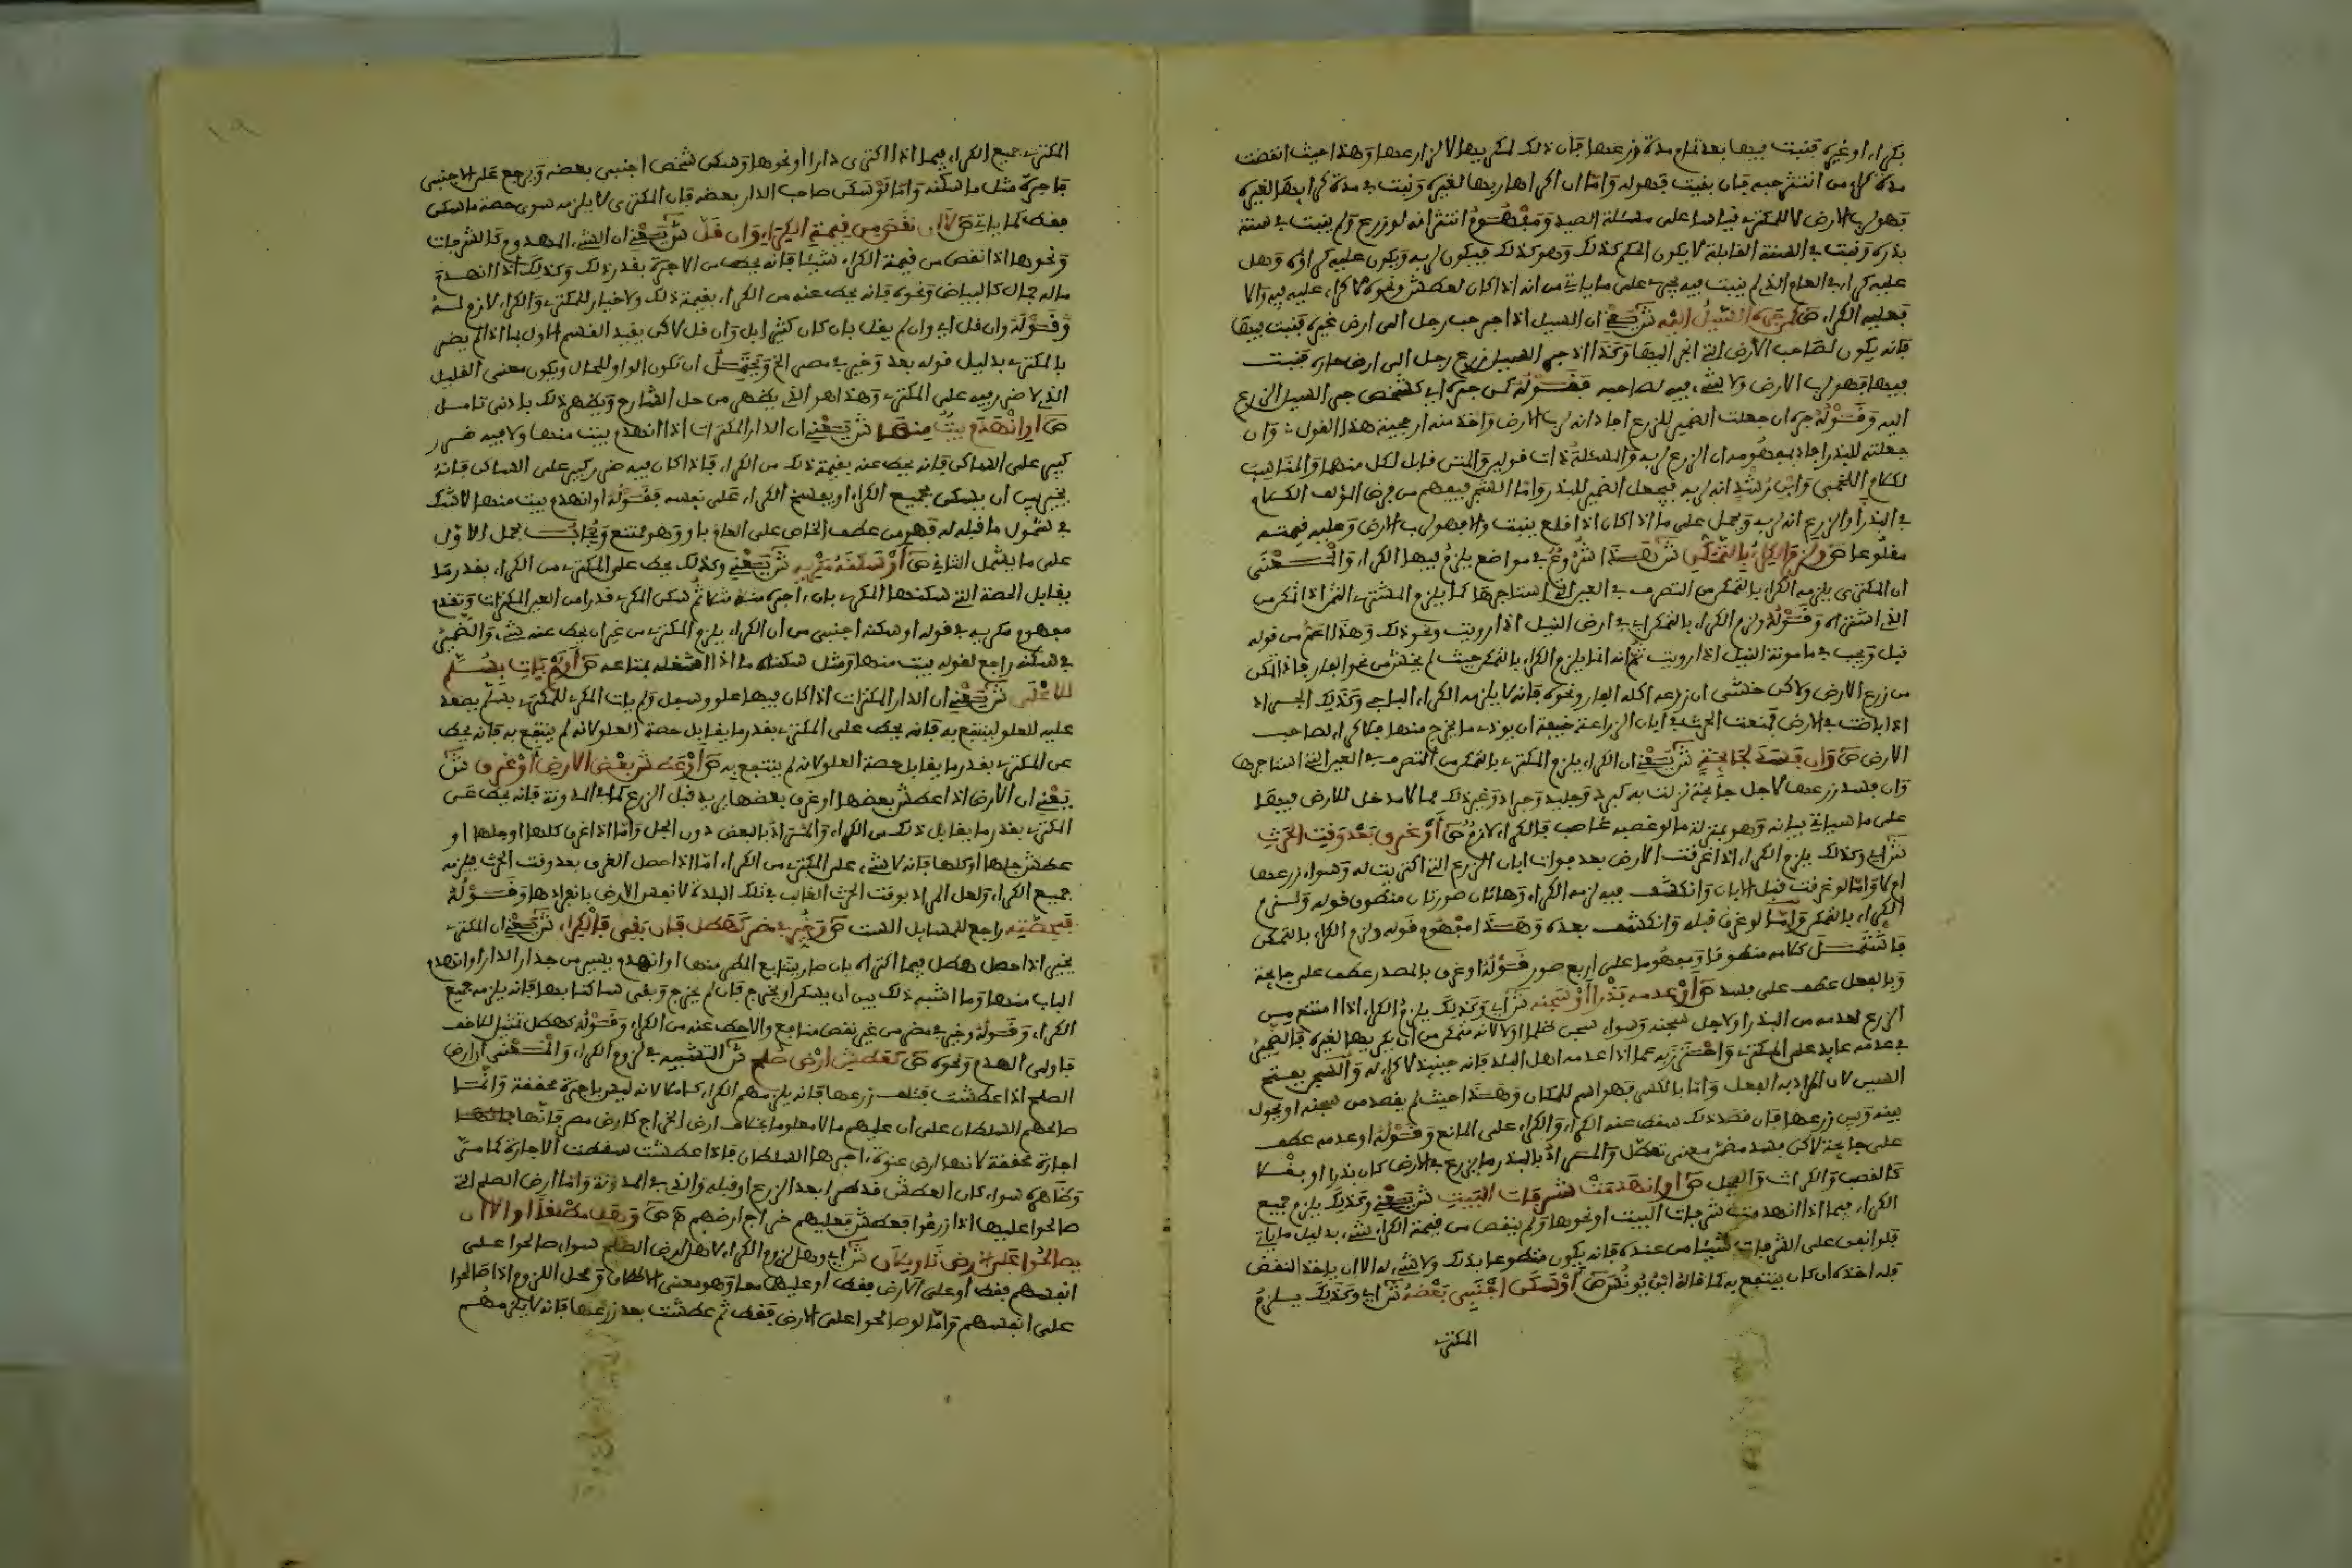 بكراء او غيره فنبت فيها بعد تمام مدة زرعها فان ذلك لمكريها لا لزارعها وهذا حيث انقضت
مدة كراء من انتثر حبه فان بقيت فهو له واما ان اكراها ربها لغيره ونبت في مدة كرايها لغيره
فهو لرب الارض لا للمكتري قياسا على مسئلة الصيد ومفهوم انتثر انه لو زرع ولم ينبت في سنة
بذره ونبت في السنة القابلة لا يكون الحكم كذلك وهو كذلك فيكون لربه ويكون عليه كراؤه وهل
عليه كراء العام الذي لم ينبت فيه يجري على ما ياتي من انه اذا كان لعطش ونحوه لا كراء عليه فيه والا
فعليه الكراء ص كمن جره السيل اليه ش يعني ان السيل اذا جر حب رجل الى ارض غيره فنبت فيها
فانه يكون لصاحب الارض التي انجر اليها وكذا اذا جر السيل زرع رجل الى ارض جاره فنبت
فيها فهو لرب الارض ولا شيء فيه لصاحبه فقوله كمن جره اي كشخص جر السيل الزرع
اليه وقوله جره ان جعلت الضمير للزرع افاد انه لرب الارض واخذ منه ارجحية هذا القول وان
جعلته للبذر افاد بمفهومه ان الزرع لربه والمسئلة ذات قولين والمتن قابل لكل منهما والمناسب
لكلام اللخمي وابن رشد انه لربه فيجعل الضمير للبذر واما الشجر فيفهم من فرض المؤلف الكلام
في البذر او الزرع انه لربه ويحمل على ما اذا كان اذا قلع ينبت والا فهو لرب الارض وعليه قيمته
مقلوعا ص ولزم الكراء بالتمكن ش هذا شروع في مواضع يلزم فيها الكراء والمعنى
ان المكتري يلزمه الكراء بالتمكن من التصرف في العين التي استاجرها كما يلزم المشتري الثمن اذا تمكن من
الذي اشتراه وقوله ولزم الكراء بالتمكن اي في ارض النيل اذا رويت ونحو ذلك وهذا اعم من قوله
قبل ويجب في مامونة النيل اذا رويت ثم انه انما يلزم الكراء بالتمكن حيث لم يخش من نحو الفار فاذا تمكن
من زرع الارض ولاكن خشي ان زرعه اكله الفار ونحوه فانه لا يلزمه الكراء الباجي وكذلك الجراد اذ
اذا باضت في الارض فمنعت الحرث في ابان الزراعة خيفة ان يوذي ما يخرج منها فلا كراء لصاحب
الارض ص وان فسد لجائحة ش يعني ان الكراء يلزم المكتري بالتمكن من التصرف في العين التي استاجرها
وان فسد زرعها لاجل جائحة نزلت به كبرد وجليد وجراد وغير ذلك مما لا مدخل للارض فيها
على ما سياتي بيانه وهو بمنزلة ما لو غصبه غاصب فالكراء لازم ص او غرق بعد وقت الحرث
ش اي وكذلك يلزم الكراء اذا غرقت الارض بعد فوات ابان الزرع التي اكتريت له وسواء زرعها
ام لا واما لو غرقت قبل الابان وانكشف فيه لزمه الكراء وهاتان صورتان منطوق قوله ولزم
الكراء بالتمكن واما لو غرق قبله وانكشف بعده وهذا مفهوم قوله ولزم الكراء بالتمكن
فاشتمل كلامه منطوقا ومفهوما على اربع صور قوله او غرق بالمصدر عطف على جائحة
وبالفعل عطف على فسد ص او عدمه بذرا او سجنه ش اي وكذلك يلزم الكراء اذا امتنع من
الزرع لعدمه من البذر او لاجل سجنه وسواء سجن ظلما او لا لانه متمكن من ان يكريها لغيره فالضمير
في عدمه عايد على المكتري واحترز به عما اذا عدمه اهل البلد فانه حينئذ لا كراء له والسجن بفتح
السين لان المراد به الفعل واما بالكسر فهو اسم للمكان وهذا حيث لم يقصد من سجنه او يحول
بينه وبين زرعها فان قصد ذلك سقط عنه الكراء والكراء على المانع وقوله او عدمه عطف
على جائحة لاكن فسد مضمن معنى تعطل والمراد بالبذر ما يزرع في الارض كان بذرا او بقلا
كالقصب والكراث والفجل ص او انهدمت شرفات البيت ش يعني وكذلك يلزم جميع
الكراء فيما اذا انهدمت شرفات البيت او نحوها ولم ينقص من قيمة الكراء شيء بدليل ما ياتي
فلو انفق على الشرفات شيئا من عنده فانه يكون متطوعا بذلك ولا شيء له الا ان ياخذ النقض
فله اخذه ان كان ينتفع به كما قاله ابن يونس ص او سكن اجنبي بعضه ش اي وكذلك يلزم
المكتري
المكتري جميع الكراء فيما اذا اكترى دارا او نحوها وسكن شخص اجنبي بعضه ويرجع على الاجنبي
باجرة مثل ما سكنه واما لو سكن صاحب الدار بعضه فان المكتري لا يلزمه سوى حصة ما سكن
فقط كما ياتي ص لا ان نقص من قيمة الكراء وان قل ش يعني ان الشيء المهدوم كالشرفات
ونحوها اذا نقص من قيمة الكراء شيئا فانه يحط من الاجرة بقدر ذلك وكذلك اذا انهدم
ماله جمال كالبياض ونحوه فانه يحط عنه من الكراء بقيمة ذلك ولا خيار للمكتري والكراء لازم له
وقوله وان قل اي وان لم يقل بان كان كثيرا بل وان قل لاكن يقيد القسم الاول بما اذا لم يضر
بالمكتري بدليل قوله بعد وخير في مضر الخ ويحتمل ان تكون الواو للحال ويكون معنى القليل
الذي لا ضرر فيه على المكتري وهذا هو الذي يظهر من حل الشارح ويظهر ذلك بادنى تامل
ص او انهدم بيت منها ش يعني ان الدار المكتراة اذا انهدم بيت منها ولا فيه ضرر
كبير على الساكن فانه يحط عنه بقيمة ذلك من الكراء فاذا كان فيه ضرر كبير على الساكن فانه
يخير بين ان يسكن بجميع الكراء او يفسخ الكراء على نفسه فقوله او انهدم بيت منها لا شك
في شمول ما قبله له فهو من عطف الخاص على العام باو وهو ممتنع ويجاب بحمل الاول
على ما يشمل الثاني ص او سكنه مكريه ش يعني وكذلك يحط على المكتري من الكراء بقدر ما
يقابل الحصة التي سكنها المكري بان اجره منه شيئا ثم سكن المكري قدرا من العين المكتراة وتقدم
مفهوم مكريه في قوله او سكنه اجنبي من ان الكراء يلزم المكتري من غير ان يحط عنه شيء والضمير
في سكنه راجع لقوله بيت منها ومثل سكناه ما اذا اشغله بمتاعه ص او لم يات بسلم
للاعلى ش يعني ان الدار المكتراة اذا كان فيها علو وسفل ولم يات المكري للمكتري بسلم يصعد
عليه للعلو لينتفع به فانه يحط على المكتري بقدر ما يقابل حصة العلو لانه لم ينتفع به فانه يحط
عن المكتري بقدر ما يقابل حصة العلو لانه لم ينتفع به ص او عطش بعض الارض او غرق ش
يعني ان الارض اذا عطش بعضها او غرق بعضها يريد قبل الزرع كما في المدونة فانه يحط عن
المكتري بقدر ما يقابل ذلك من الكراء والمراد بالبعض دون الجل واما اذا غرق كلها او جلها او
عطش جلها او كلها فانه لا شيء على المكتري من الكراء اما اذا حصل الغرق بعد وقت الحرث فيلزمه
جميع الكراء ولعل المراد بوقت الحرث الغالب في تلك البلدة لا نفس الارض بانفرادها وقوله
فبحصته راجع للمسايل الست ص وخير في مضر كهطل فان بقي فالكراء ش يعني ان المكتري
يخير اذا حصل هطل فيما اكتراه بان صار يتتابع المطر منها او انهدم يسير من جدار الدار او انهدم
الباب منها وما اشبه ذلك بين ان يسكن او يخرج فان لم يخرج وبقي ساكنا بها فانه يلزمه جميع
الكراء وقوله وخير في مضر من غير نقص منافع والا حط عنه من الكراء وقوله كهطل تمثيل للاخف
فاولى الهدم ونحوه ص كعطش ارض صلح ش التشبيه في لزوم الكراء والمعنى ان ارض
الصلح اذا عطشت فتلف زرعها فانه يلزمهم الكراء كاملا لانه ليس باجرة محققة وانما
صالحهم السلطان على ان عليهم مالا معلوما بخلاف ارض الخراج كارض مصر فانها
اجارة محققة لانها ارض عنوة اجرها السلطان فاذا عطشت سقطت الاجارة كما مر
وظاهره سواء كان العطش قد طرا بعد الزرع او قبله والذي في المدونة واما ارض الصلح التي
صالحوا عليها اذا زرعوا فعطش فعليهم خراج ارضهم ص وهل مطلقا او الا ان
يصالحوا على الارض تاويلان ش اي وهل لزوم الكراء لاهل ارض الصلح سواء صالحوا على
انفسهم فقط او على الارض فقط او عليهما معا وهو معنى الاطلاق او محل اللزوم اذا صالحوا
على انفسهم واما لو صالحوا على الارض فقط ثم عطشت بعد زرعها فانه لا يلزمهم